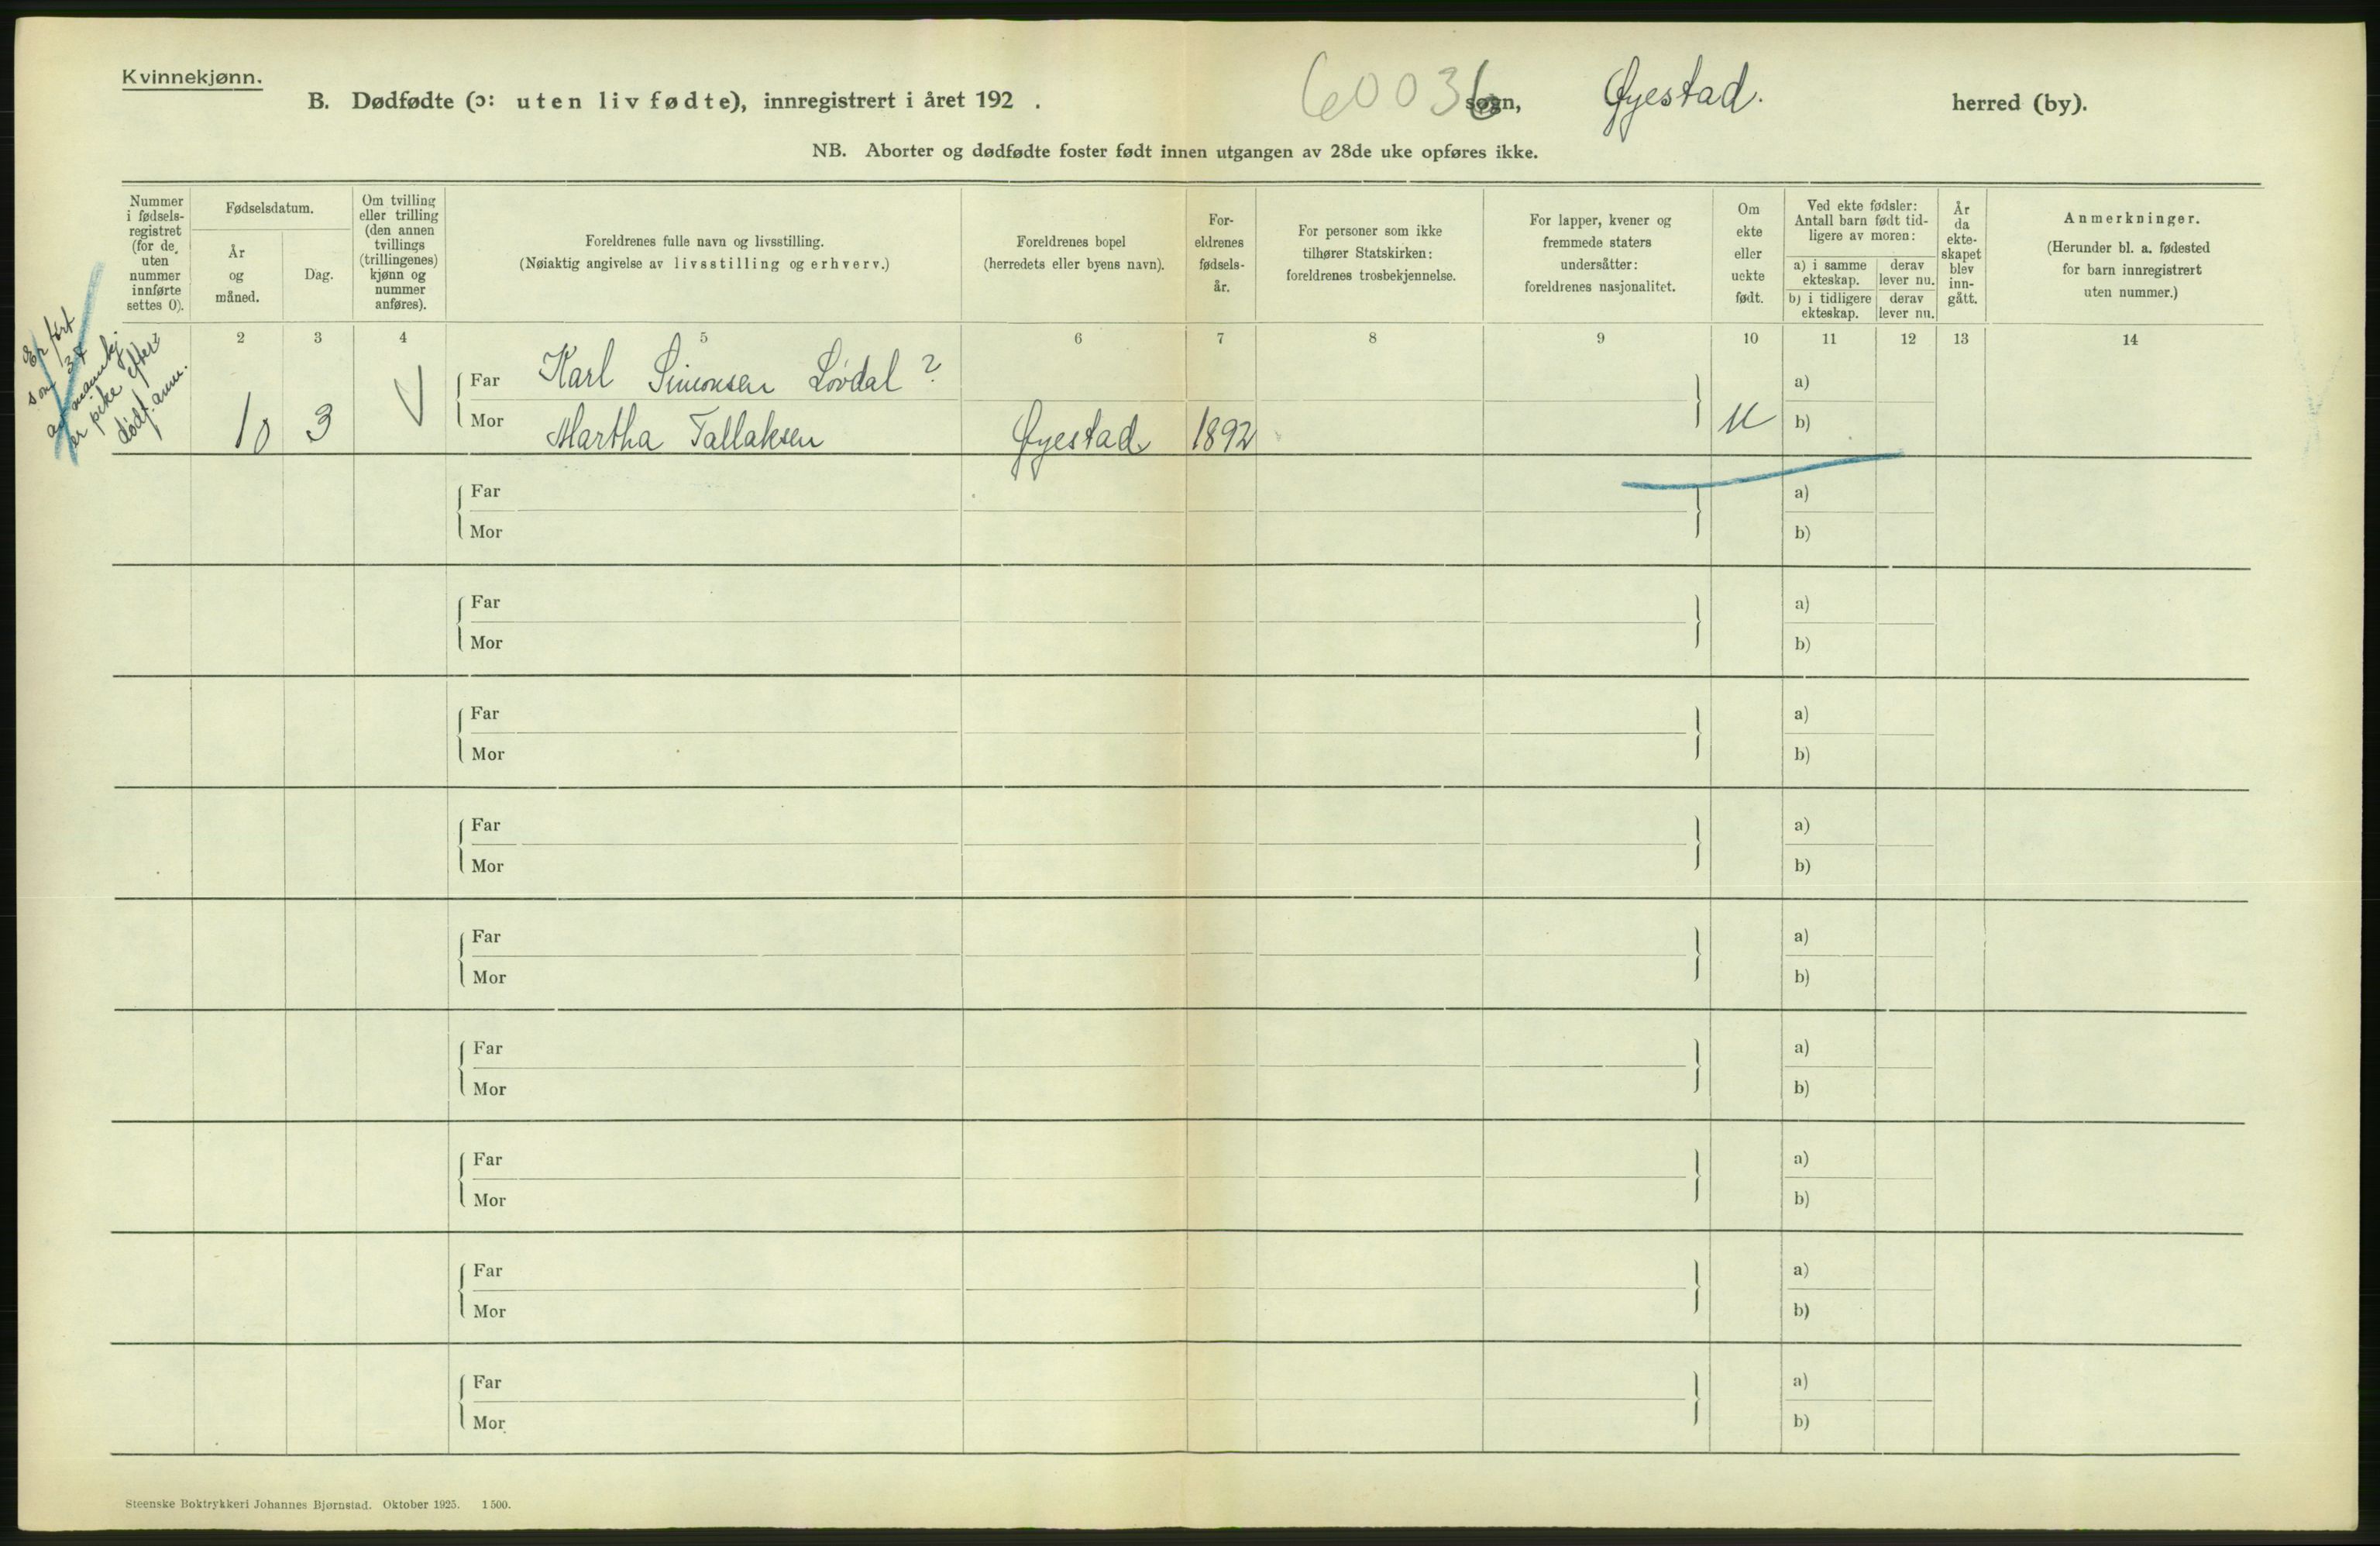 Kvinnekjønn.
B. Dødfødte (ɔ: uten liv fødte), innregistrert i året 192 . 60036 sogn, Øyestad. herred (by).
NB. Aborter og dødfødte foster født innen utgangen av 28de uke opføres ikke.
Nummer i fødsels-registret (for de uten nummer innførte settes 0).
Fødselsdatum.
År og måned.
Dag.
Om tvilling eller trilling (den annen tvillings (trillingenes) kjønn og nummer anføres).
Foreldrenes fulle navn og livsstilling.
(Nøiaktig angivelse av livsstilling og erhverv.)
Foreldrenes bopel
(herredets eller byens navn).
For-eldrenes fødsels-år.
For personer som ikke tilhører Statskirken: foreldrenes trosbekjennelse.
For lapper, kvener og fremmede staters undersåtter: foreldrenes nasjonalitet.
Om ekte eller uekte født.
Ved ekte fødsler: Antall barn født tid-ligere av moren:
a) i samme ekteskap.
derav lever nu.
b) i tidligere ekteskap.
derav lever nu.
År da ekte-skapet blev inn-gått.
Anmerkninger.
(Herunder bl. a. fødested for barn innregistrert uten nummer.)
2 3 4 5 6 7 8 9 10 11 12 13 14
Er ført
som 37
av mannkj.
er pike efter
dødf. anm.
Far Karl Simonsen Løvdal ? a)
10 3 V Mor Martha Tallaksen Øyestad 1892 U b)
Far a)
Mor b)
Far a)
Mor b)
Far a)
Mor b)
Far a)
Mor b)
Far a)
Mor b)
Far a)
Mor b)
Far a)
Mor b)
Far a)
Mor b)
Far a)
Mor b)
Steenske Boktrykkeri Johannes Bjørnstad. Oktober 1925. 1500.